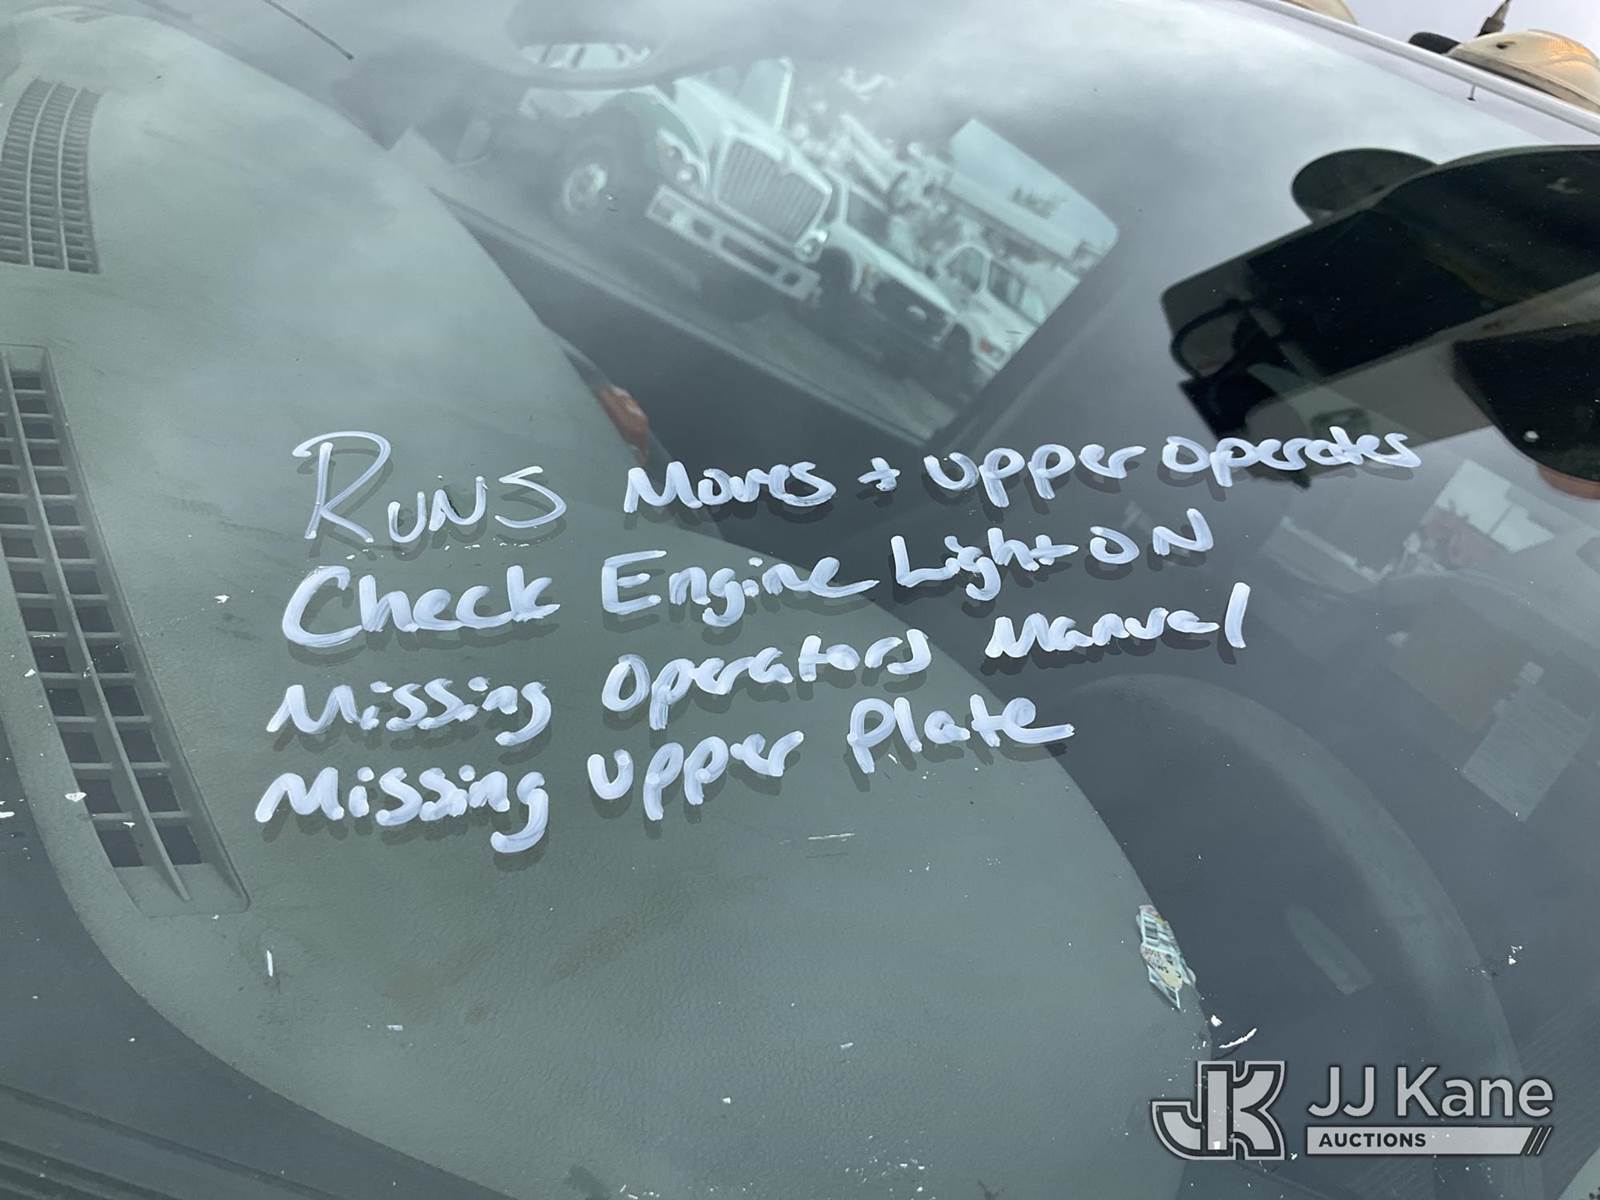 RUNS Moves + Upper Operates
Check Engine Light ON
Missing Operators Manual
Missing Upper Plate
JK
JJ Kane
AUCTIONS